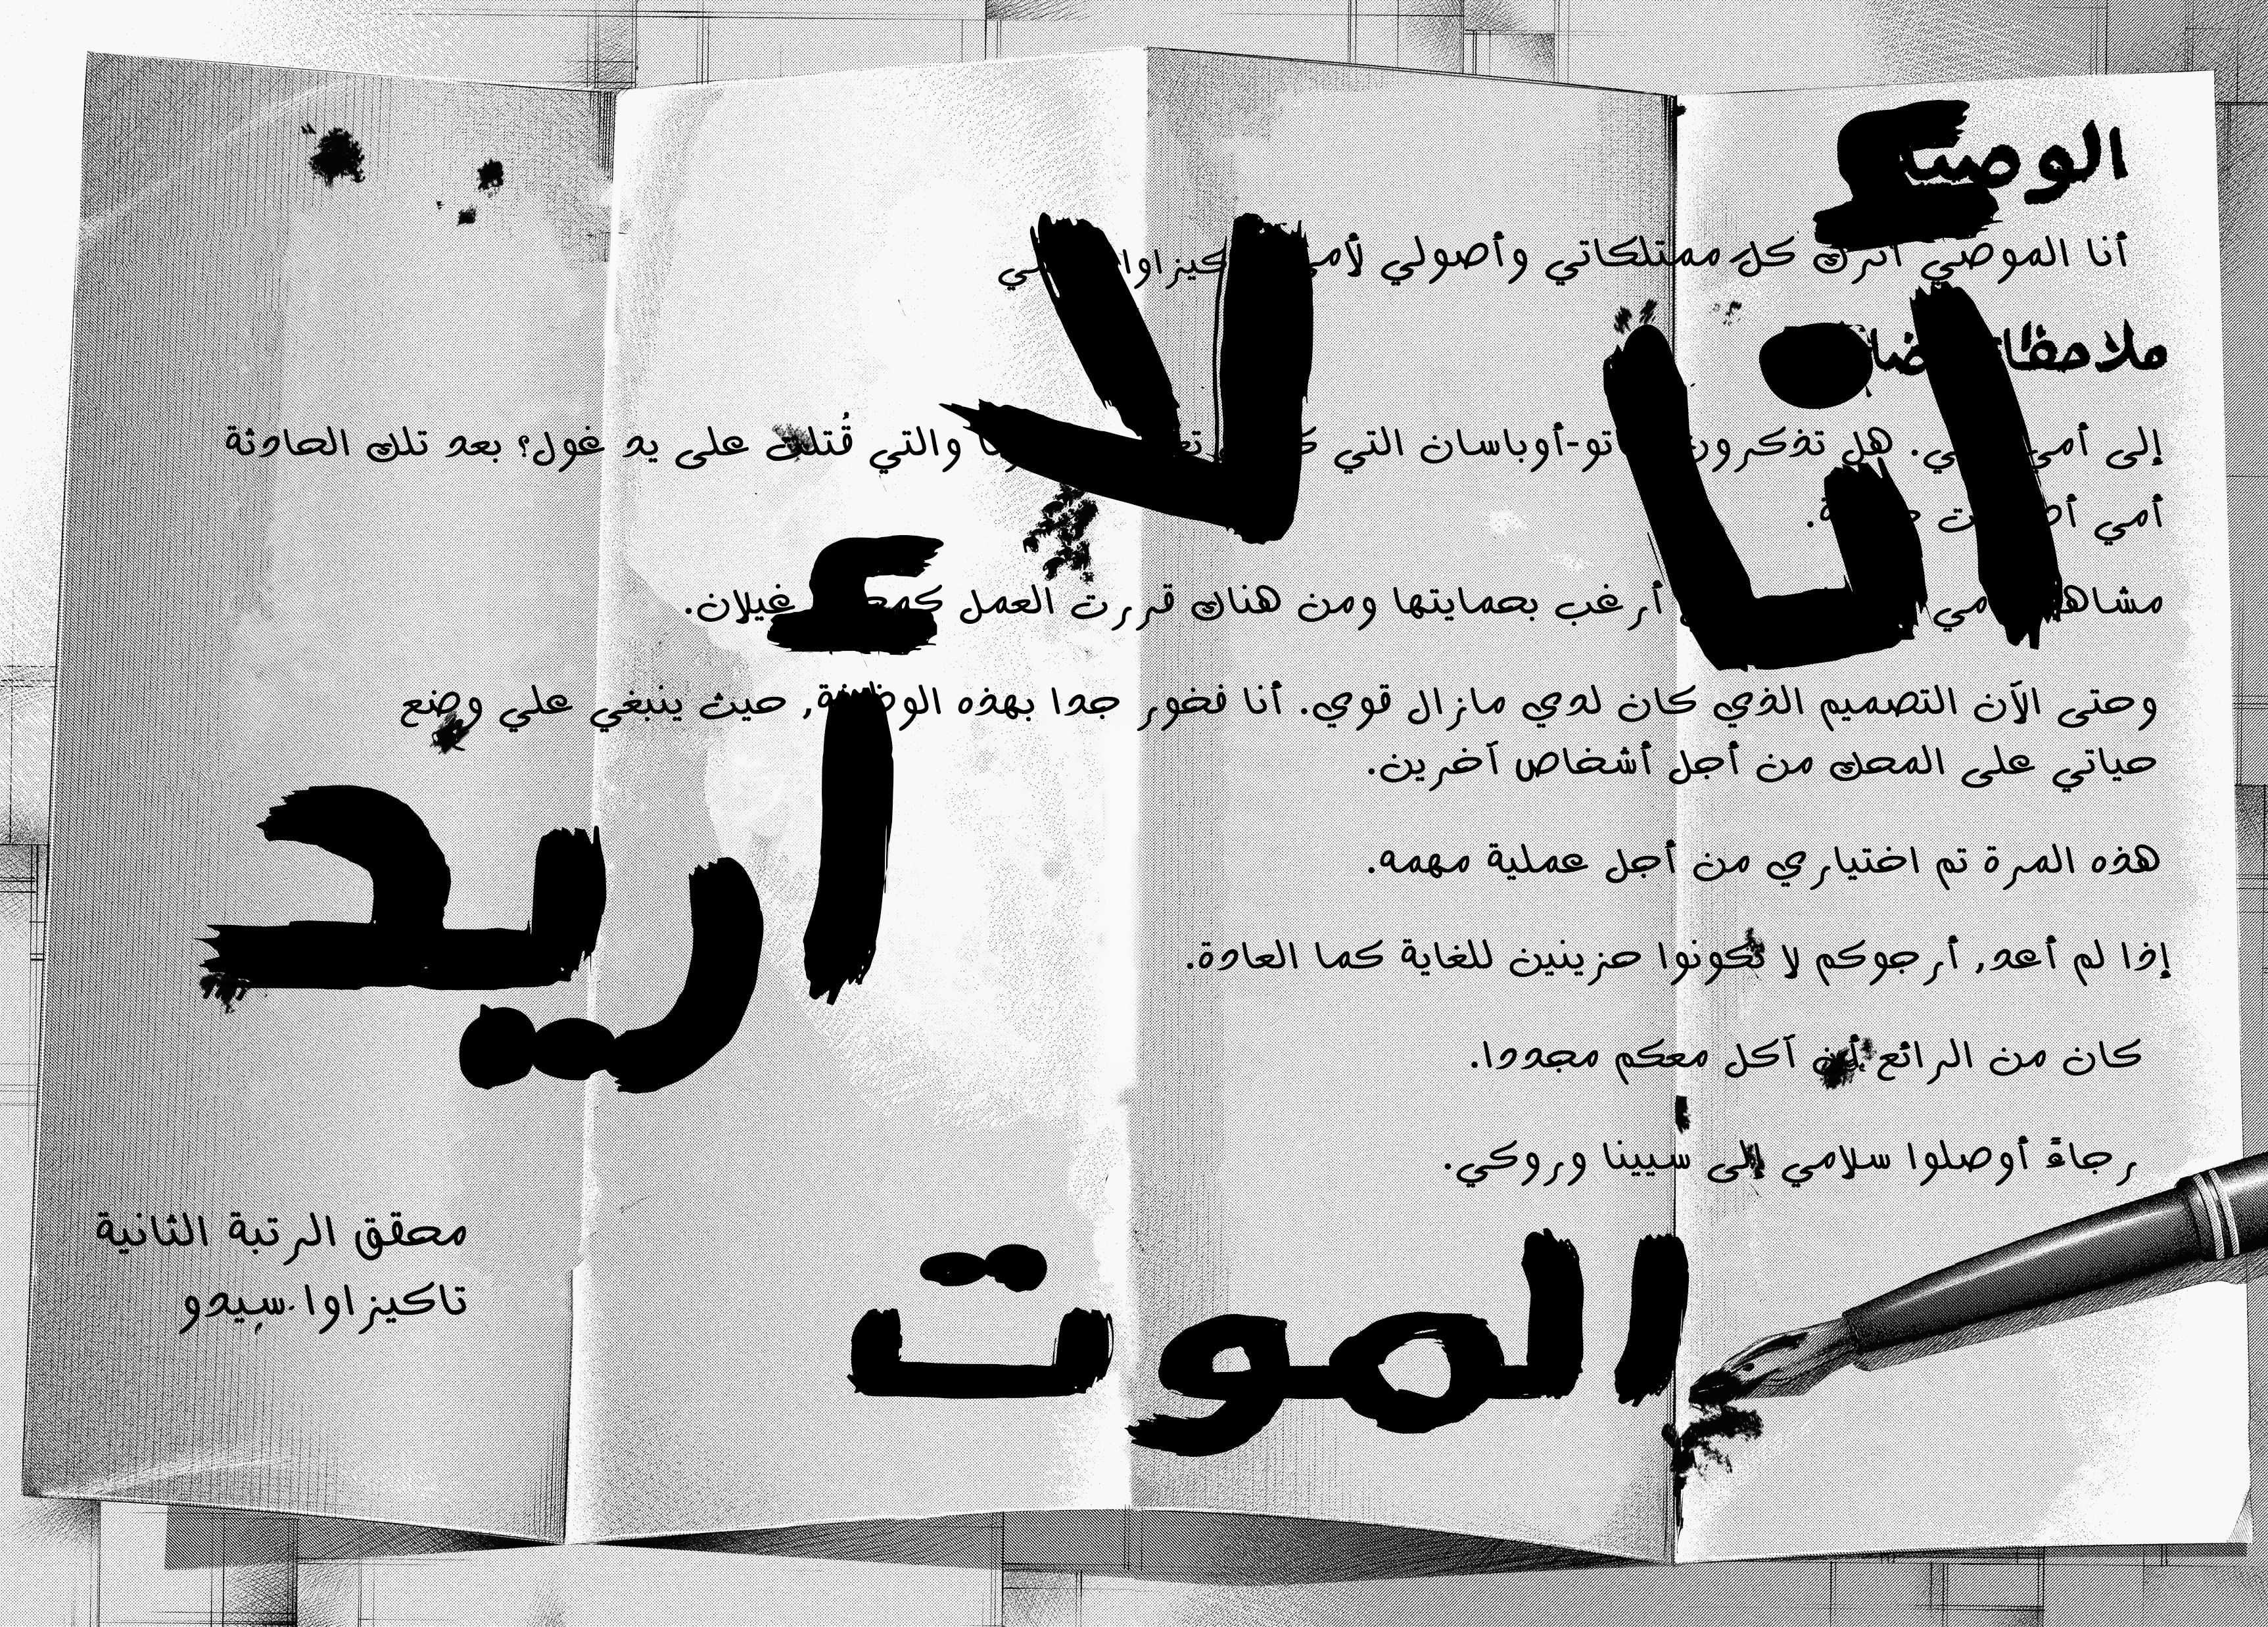 أنا الموصي أترك كل ممتلكاتي وأصولي لأمي
إلى أمي هل تذكرون التي والتي قُتلت على يد غول؟ بعد تلك الحادثة
أمي
أرغب بحمايتها ومن هناك قررت العمل غيلان.
وحتى الآن التصميم الذي كان لدي مازال قوي. أنا فخور جدا بهذه الوظيفة, حيث ينبغي علي وضع
حياتي على المحك من أجل أشخاص آخرين.
هذه المرة تم اختياري من أجل عملية مهمه.
إذا لم أعد, أرجوكم لا تكونوا حزينين للغاية كما العادة.
كان من الرائع أن آكل معكم مجددا.
رجاءً أوصلوا سلامي إلى سيينا وروكي.
محقق الرتبة الثانية
تاكيزاوا.سيدو
أنا لا أريد الموت